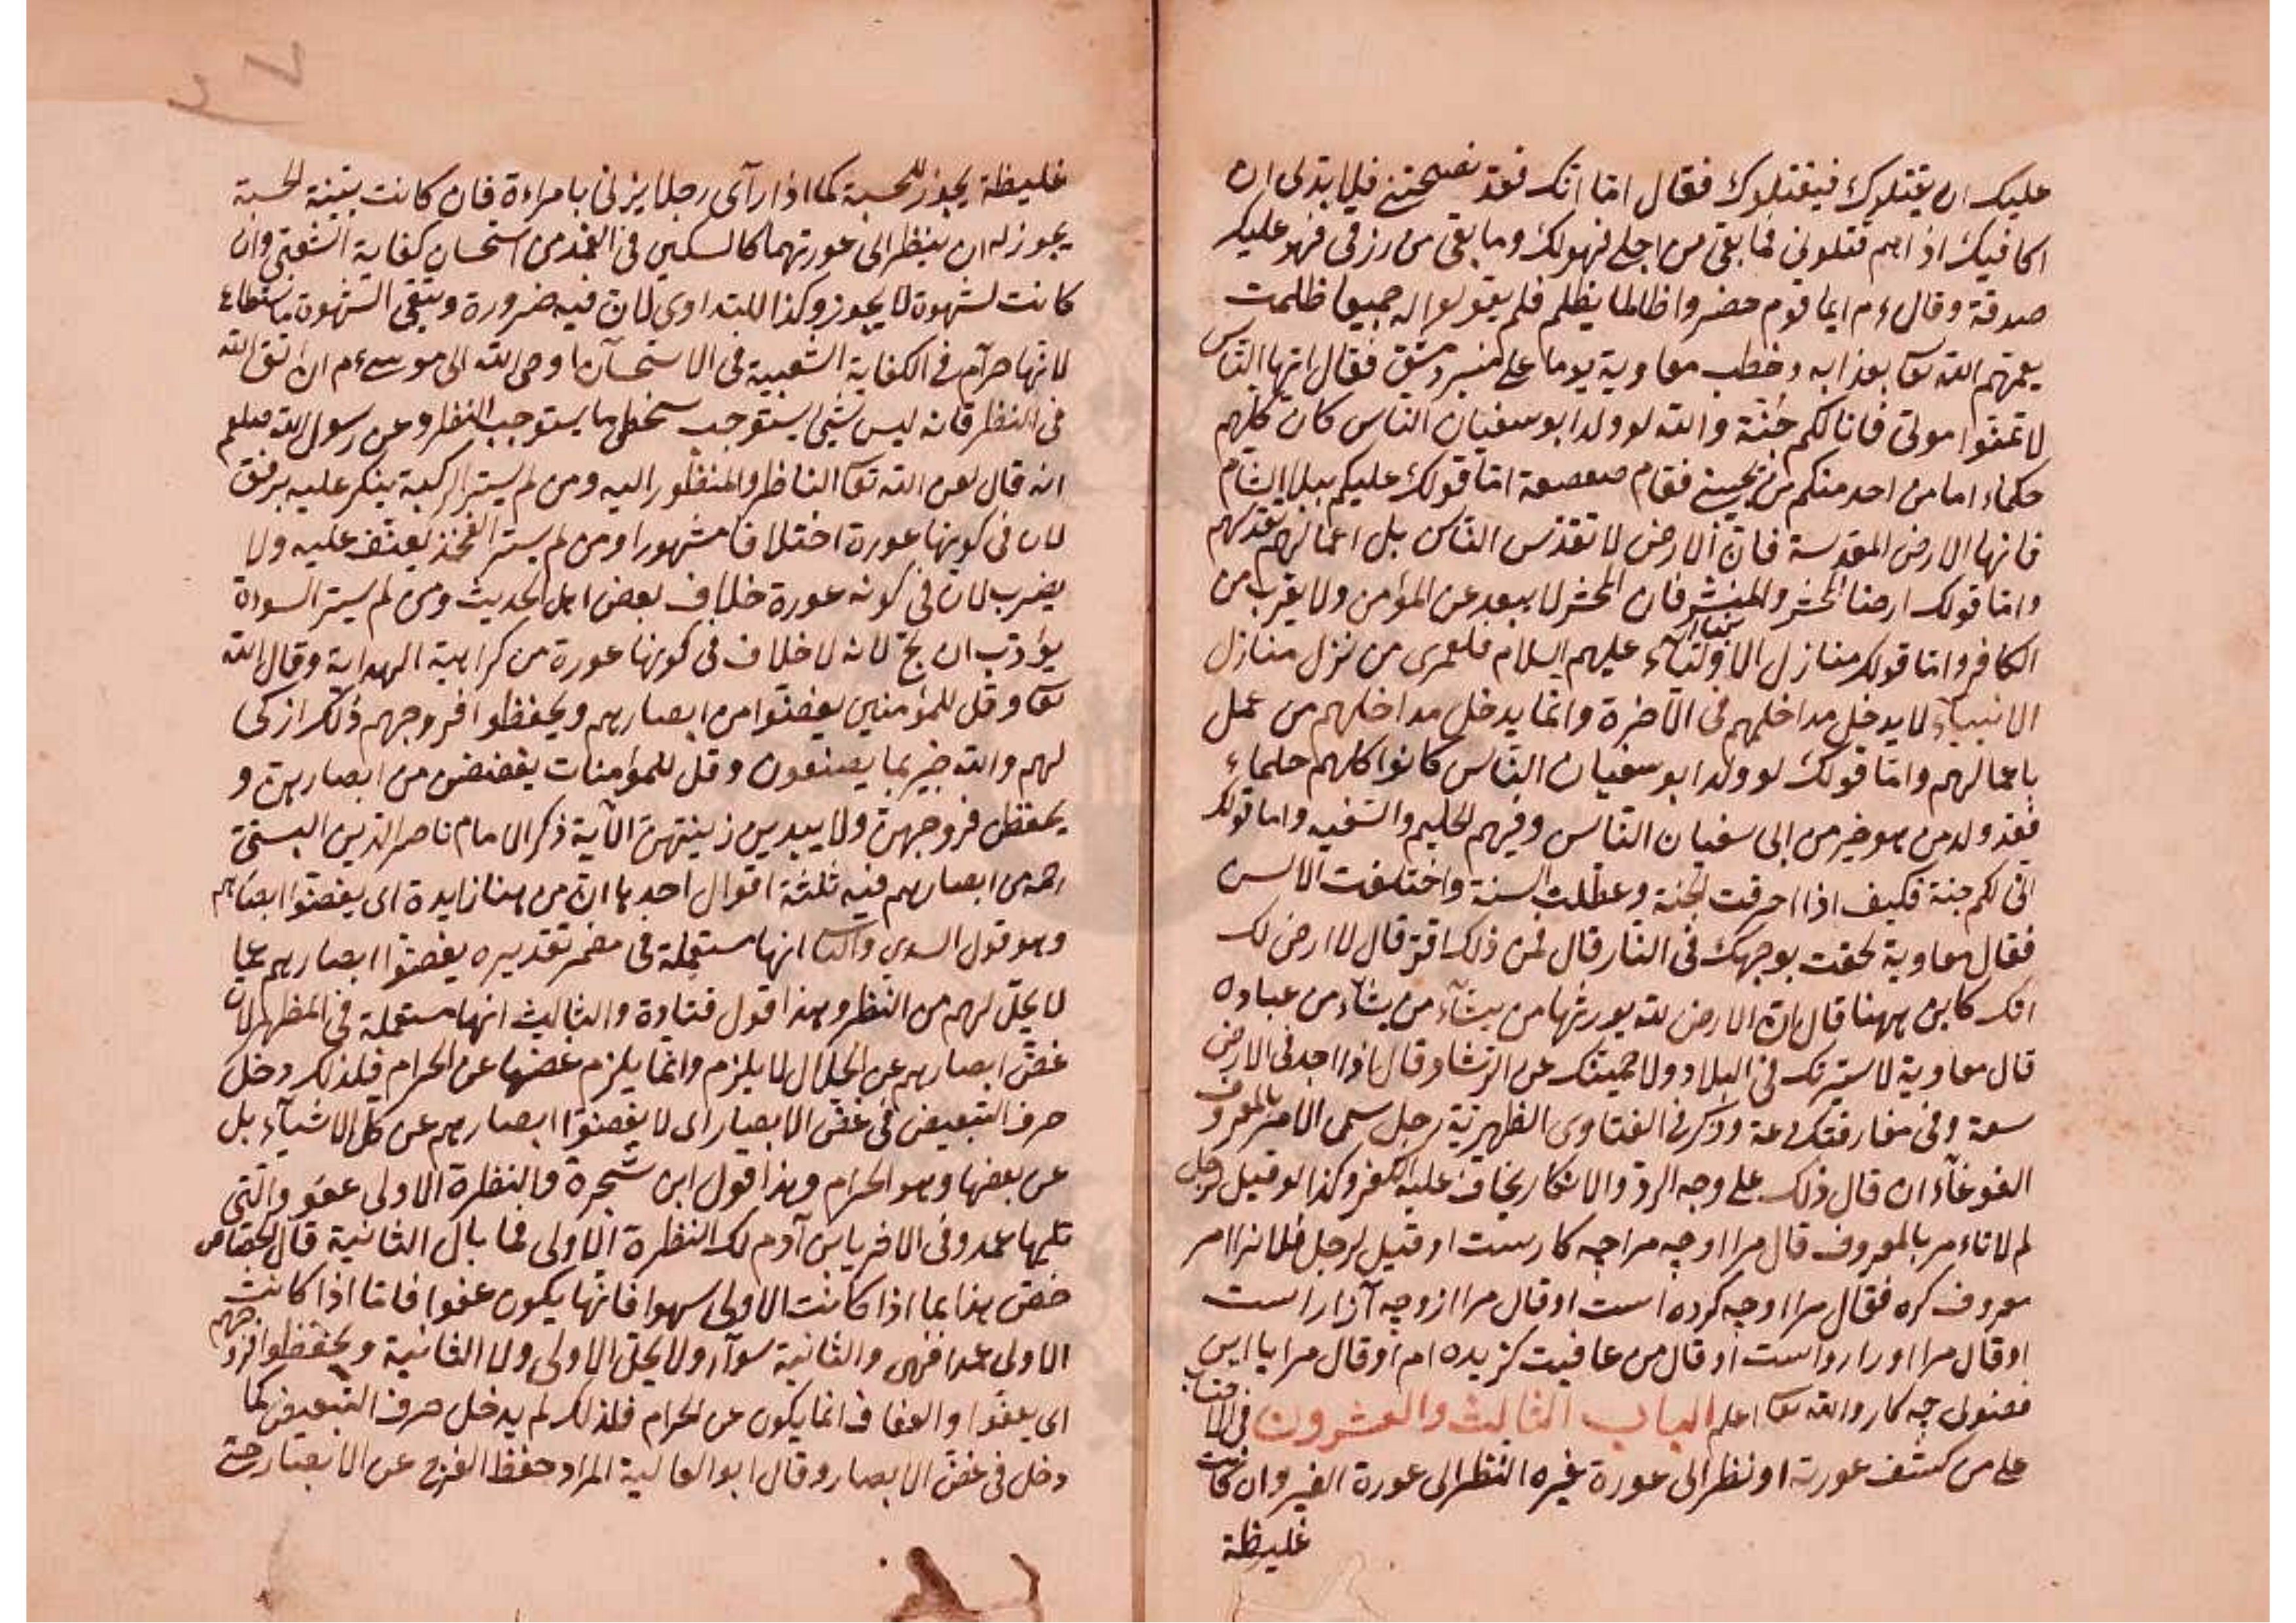 عليك ان يقتلوك فيقتلوك فقال اما انك فقد نصحتني فلا بد لي ان
اكافيك اذا هم قتلوني فما بقي من اجلي فهو لك وما بقي من رزقي فهو عليك
صدقة وقال ءم ايما قوم حضروا ظالما يظلم فلم يقولوا له جميعا ظلمت
يعمهم الله تعا بعذابه وخطب معاوية يوما على منبر دمشق فقال ايها الناس
لا تمنوا موتي فانا لكم جنة والله لو ولد ابو سفيان الناس كان كلهم
حكماء اما من احد منكم من يجيبني فقام صعصعة اما قولك عليكم ببلاد الشام
فانها الارض المقدسة فان الارض لا تقدس الناس بل اعمالهم تقدسهم
واما قولك ارضنا المحشر والمنشر فان المحشر لا يبعد عن المؤمن ولا يقرب من
الكافر واما قولك منازل الاولياء عليهم السلام فلعمرى من نزل منازل
الانبياء لا يدخل مداخلهم في الآخرة وانما يدخل مداخلهم من عمل
باعمالهم واما قولك لو ولد ابو سفيان الناس كانوا كلهم حلماء
فقد ولد من هو خير من ابى سفيان الناس وفيهم الحليم والسفيه واما قولك
اني لكم جنة فكيف اذا احرقت الجنة وعطلت السنة واختلفت الالسن
فقال معاوية لحقت بوجهك في النار قال فمن ذلك اقر قال لا ارض لك
انك كاين ههنا قال ان الارض لله يورثها من يشآء من عباده
قال معاوية لاسيرنك في البلاد ولاحمينك عن الرشاد قال اذا اجد في الارض
سعة وفي مفارقتك دعة وذكر في الفتاوى الظهيرية رجل سمى الامر بالمعروف
الغوغآء ان قال ذلك على وجه الرد والانكار يخاف عليه الكفر وكذا لو قيل لرجل
لم لا تاءمر بالمعروف قال مرا او چه مرا چه كارست او قيل لرجل فلانرا امر
معروف كره فقال مرا او چه كرده است او قال مرا ازو چه آزار است
او قال مرا او را رواست او قال من عافيت كزيده ام او قال مرا با اين
فضولى چه كار والله تعا اعلم الباب الثالث والعشرون في الاحتساب
على من كشف عورته او نظر الى عورة غيره النظر الى عورة الغير وان كانت
غليظة
غليظة يجوز للحسبة كما اذا رآى رجلا يزني بامراءة فان كانت بنية الحسبة
يجوز له ان ينظر الى عورتهما كالسكين في الغمد من استحسان كفاية الشعبي وان
كانت لشهوة لا يجوز وكذا للتداوى لان فيه ضرورة ويتقى الشهوة ما استطاع
لانها حرآم في الكفاية الشعبية في الاستحسان اوحى الله الى موسى ءم ان اتق الله
في النظر فانه ليس شئ يستوجب سخطي ما يستوجب النظر وعن رسول الله صلعم
انه قال لعن الله تعا الناظر والمنظور اليه ومن لم يستر الركبة ينكر عليه برفق
لان في كونها عورة اختلافا مشهورا ومن لم يستر الفخذ يعنف عليه ولا
يضرب لان في كونه عورة خلاف بعض اهل الحديث ومن لم يستر السوءة
يؤدب ان لج لانه لا خلاف في كونها عورة من كراهية الهداية وقال الله
تعا وقل للمؤمنين يغضوا من ابصارهم ويحفظوا فروجهم ذلك ازكى
لهم والله خبير بما يصنعون وقل للمؤمنات يغضضن من ابصارهن و
يحفظن فروجهن ولا يبدين زينتهن الآية ذكر الامام ناصر الدين البستي
رحمه من ابصارهم فيه ثلثة اقوال احدها ان من هنا زايدة اى يغضوا ابصارهم
وهو قول السدي والثا انها مستعملة في مضمر تقديره يغضوا ابصارهم عما
لا يحل لهم من النظر وهذا قول قتادة والثالث انها مستعملة في المظهر لان
غض ابصارهم عن الحلال لا يلزم وانما يلزم غضها عن الحرام فلذلك دخل
حرف التبعيض في غض الابصار اى لا يغضوا ابصارهم عن كل الاشيآء بل
عن بعضها وهو الحرام وهذا قول ابن شجرة والنظرة الاولى عفو والتي
تليها عمد وفي الاخر يابن آدم لك النظرة الاولى فما بال الثانية قال الخصاص
خص هذا بما اذا كانت الاولى سهوا فانها يكون عفوا فاما اذا كانت
الاولى عمدا فهي والثانية سوآء ولا يحل الاولى ولا الثانية ويحفظوا فروجهم
اى يعفوا والعفاف انما يكون عن الحرام فلذلك لم يدخل حرف التبعيض كما
دخل في غض الابصار وقال ابو العالية المراد حفظ الفرج عن الابصار حتى